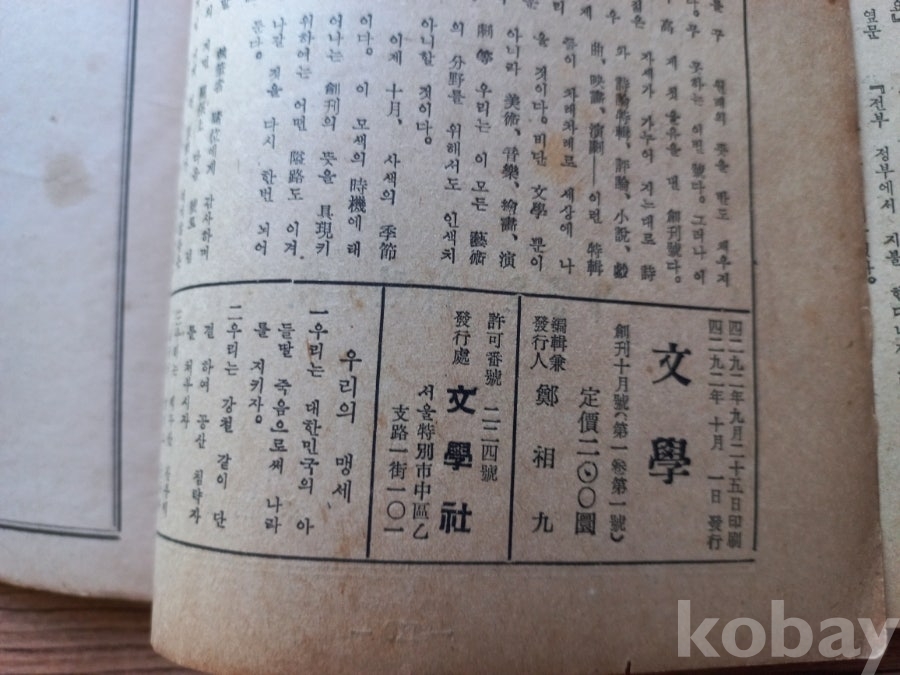 원래의 뜻을 한도 채우지
못하는 어떤 號다. 그러나 이
제 첫 울음을 낸 創刊號다.
자세가 가누어 지는대로 詩
와 詩論特輯, 評論, 小說, 戱
曲, 映畵, 演劇——이런 特輯
들이 차례차례로 세상에 나
올 것이다. 비단 文學 뿐이
아니라 美術, 音樂, 繪畵, 演
劇等 우리는 이 모든 藝術
의 分野를 위해서도 인색치
아니할 것이다.
이제 十月, 사색의 季節
이다. 이 모색의 時機에 태
어나는 創刊의 뜻을 具現키
위하여는 어떤 隘路도 이겨
나갈 것을 다시 한번 되어
둔다.
에게 감사하며
四二九二年九月二十五日印刷
四二九二年 十月 一日 發行
文學
創刊十月號(第一卷第一號)
定價二〇〇圜
編輯兼
發行人 鄭相九
許可番號 二二四號
發行處 文學社
서울特別市中區乙
支路一街一〇一
우리의 맹세
一우리는 대한민국의 아
들딸 죽음으로써 나라
를 지키자.
二우리는 강철 같이 단
결 하여 공산 침략자
를 쳐부시자
옆문
『전부 정부에서 지불
kobay